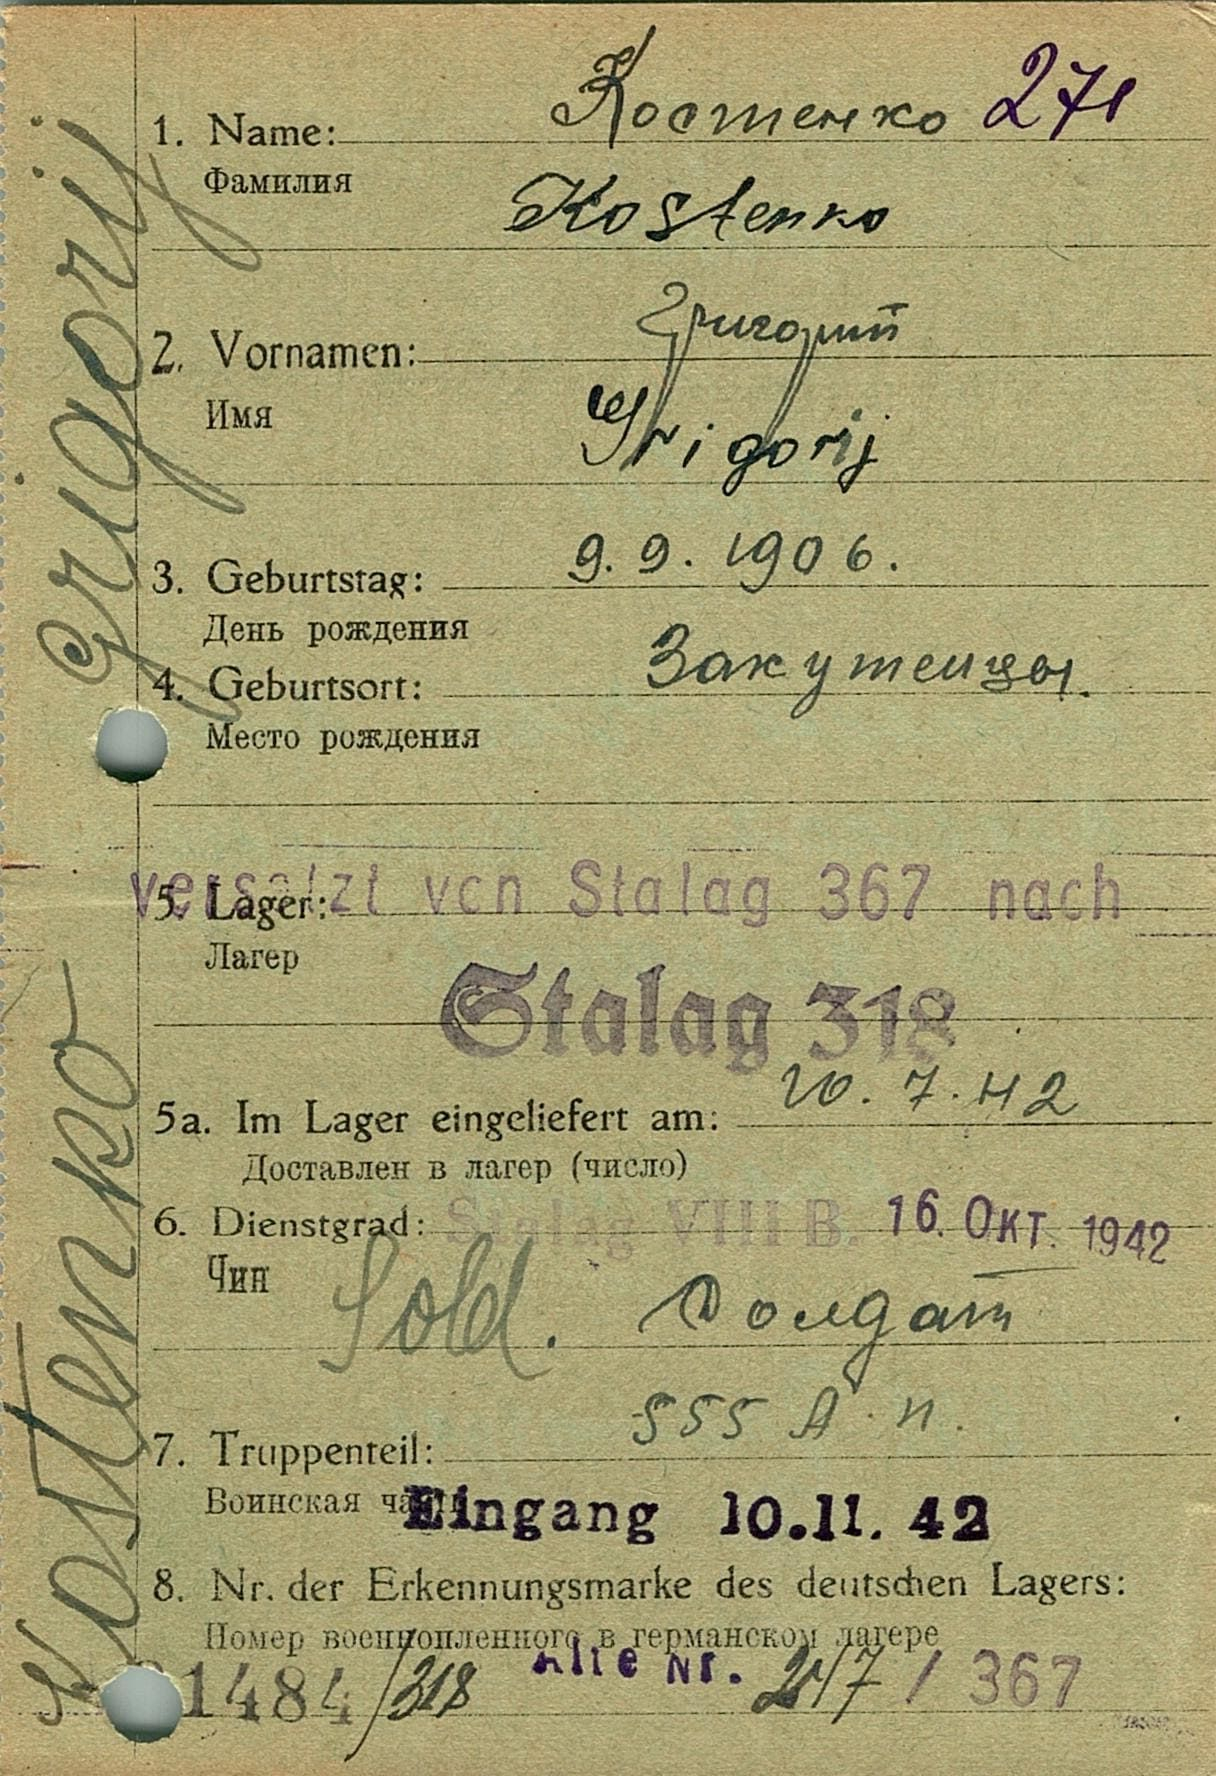 Костенко 271
1. Name:
Фамилия
Kostenko
Григорий
2. Vornamen:
Имя
Grigorij
9. 9. 1906.
3. Geburtstag:
День рождения
Закутенцы.
4. Geburtsort:
Место рождения
versetzt von Stalag 367 nach
5. Lager:
Лагер
Stalag 318
10. 7. 42
5a. Im Lager eingeliefert am:
Доставлен в лагер (число)
6. Dienstgrad: Stalag VIII B. 16. Окт. 1942
Чин
Sold. Солдат
555 А. п.
7. Truppenteil:
Воинская часть
Eingang 10.11.42
8. Nr. der Erkennungsmarke des deutschen Lagers:
Номер военнопленного в германском лагере
1484/318 Alte Nr. / 367
Kostenko Grigorij